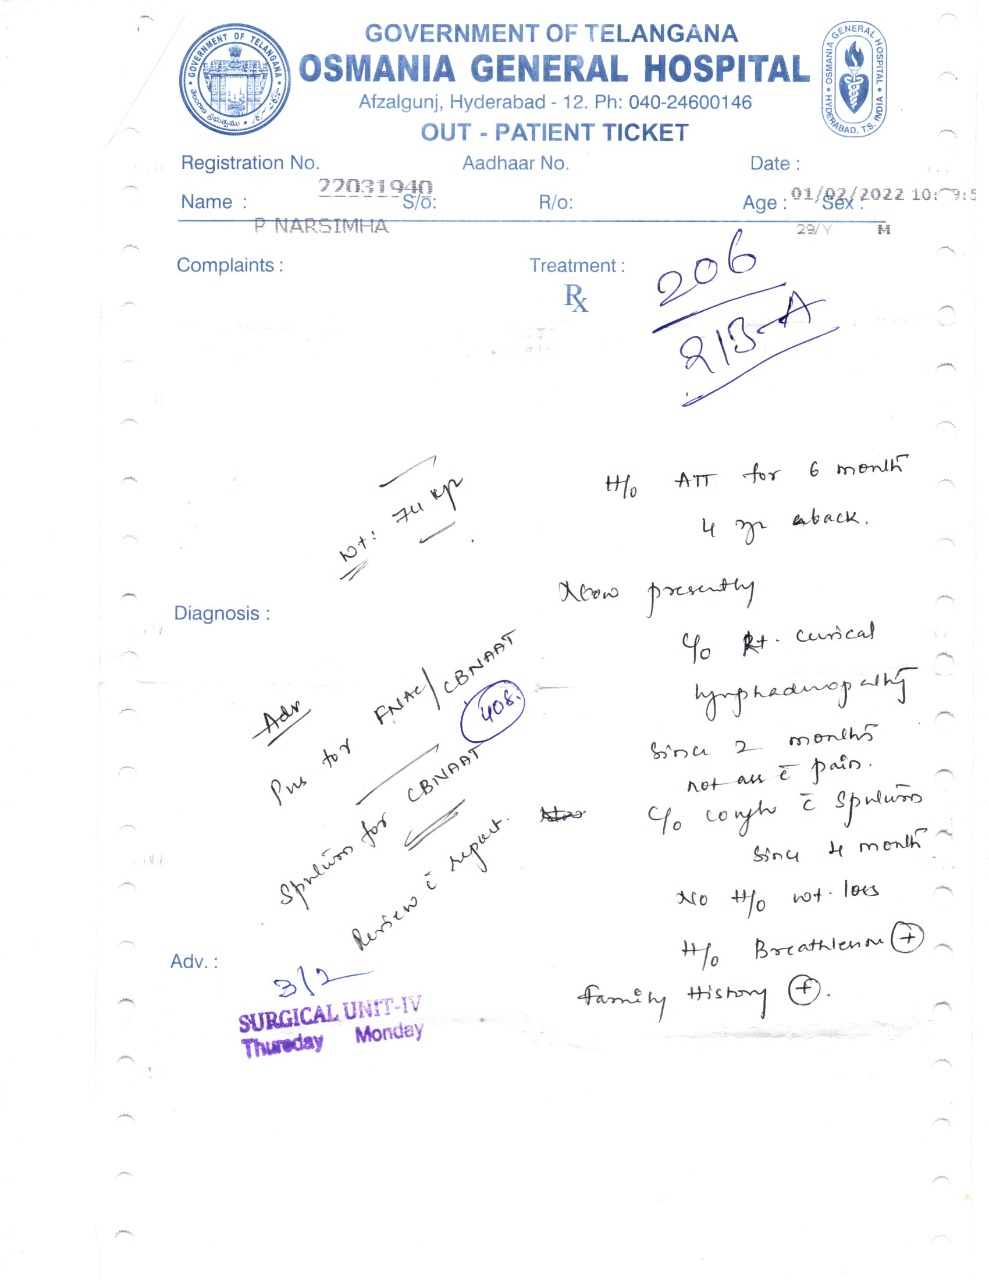 GOVERNMENT OF TELANGANA
OSMANIA GENERAL HOSPITAL
Afzalgunj, Hyderabad - 12. Ph: 040-24600146
OUT - PATIENT TICKET
GOVERNMENT OF TELANGANA
OSMANIA GENERAL HOSPITAL
HYDERABAD, T.S. INDIA
Registration No. Aadhaar No. Date :
22031940 01/02/2022 10:
Name : S/o: R/o: Age : Sex :
P NARSIMHA 29/Y M
Complaints : Treatment :
Rx
206
213-A
Wt: 74 kgs
H/o ATT for 6 month
4 yr aback.
Now presently
Diagnosis :
c/o Rt. cervical
lymphadenopathy
since 2 months
not ass c̄ pain.
c/o cough c̄ sputum
since 4 month
No H/o wt. loss
H/o Breathlessness +
Family History +.
Adv
Pns for FNAC/CBNAAT
408.
Sputum for CBNAAT
Review c̄ report.
Adv. :
3/2
SURGICAL UNIT-IV
Thursday Monday